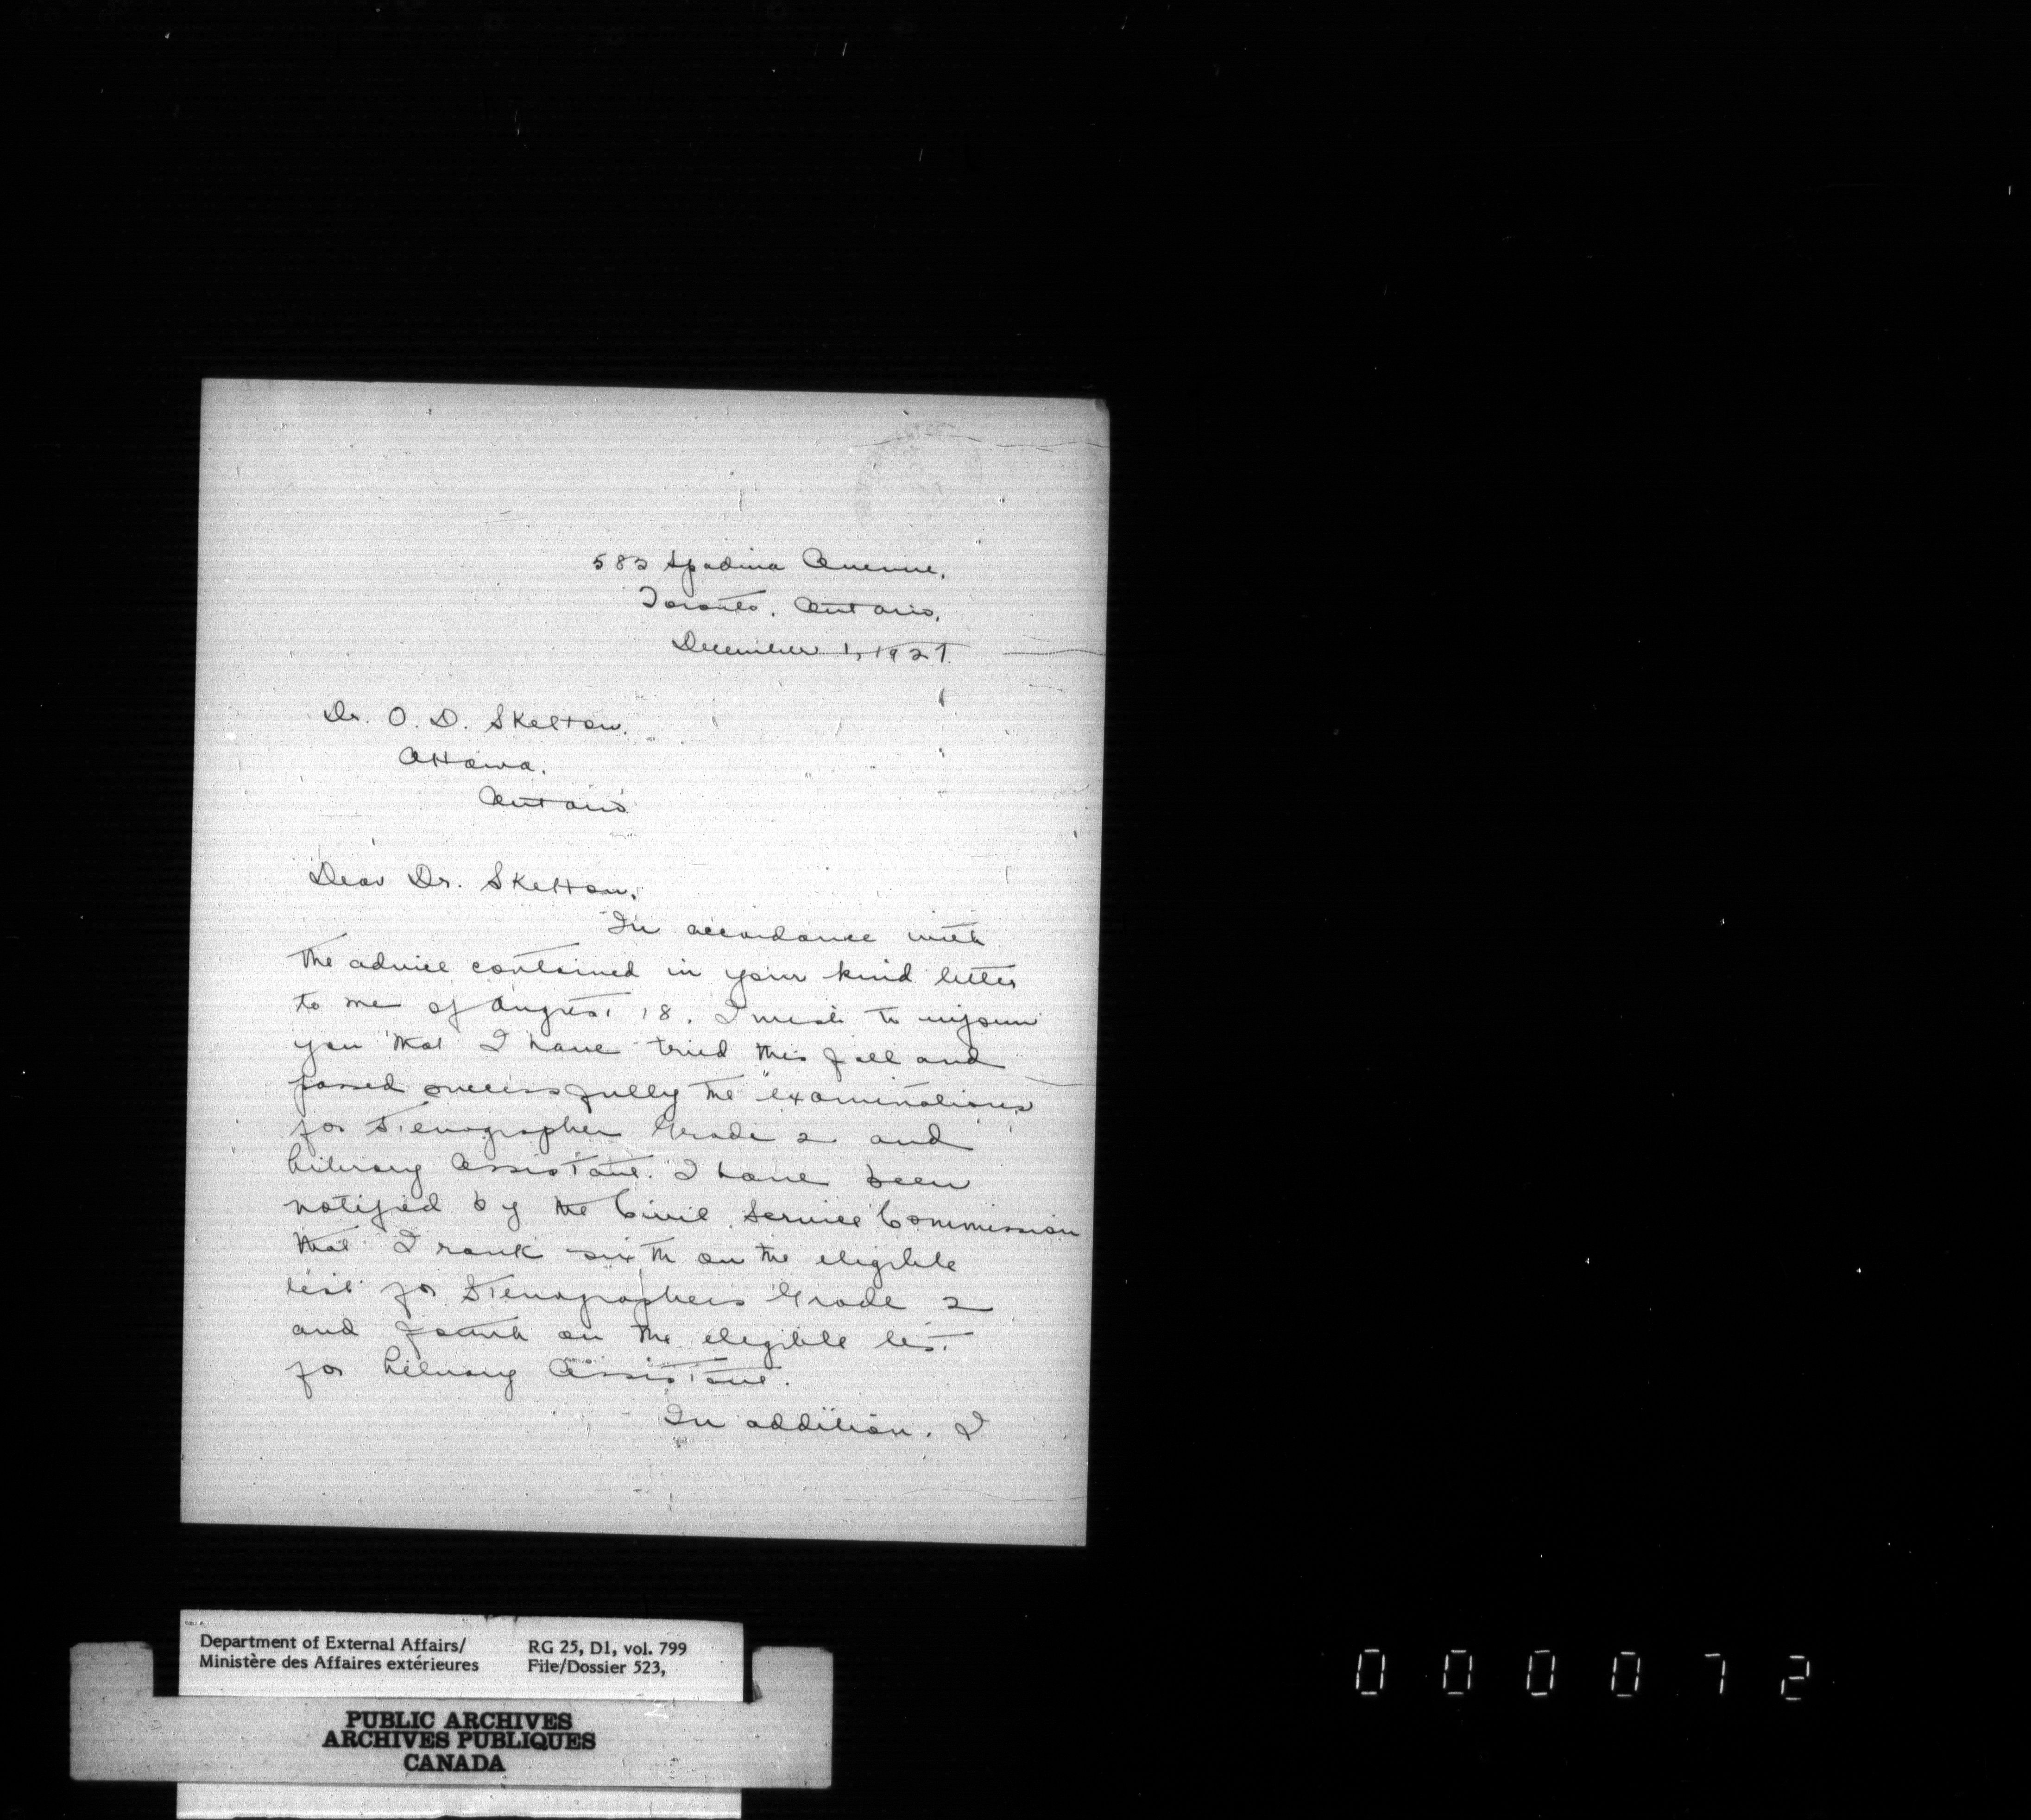 583 Spadina Avenue,
Toronto, Ontario,
December 1, 1927.
Dr. O. D. Skelton,
Ottawa,
Ontario
Dear Dr. Skelton,
In accordance with
the advice contained in your kind letter
to me of August 18, I wish to inform
you that I have tried this fall and
passed successfully the examinations
for Stenographer Grade 2 and
Library Assistant. I have been
notified by the Civil Service Commission
that I rank sixth on the eligible
list for Stenographers Grade 2
and fourth on the eligible list
for Library Assistant.
In addition, I
Department of External Affairs/
Ministère des Affaires extérieures
RG 25, D1, vol. 799
File/Dossier 523,
PUBLIC ARCHIVES
ARCHIVES PUBLIQUES
CANADA
000072